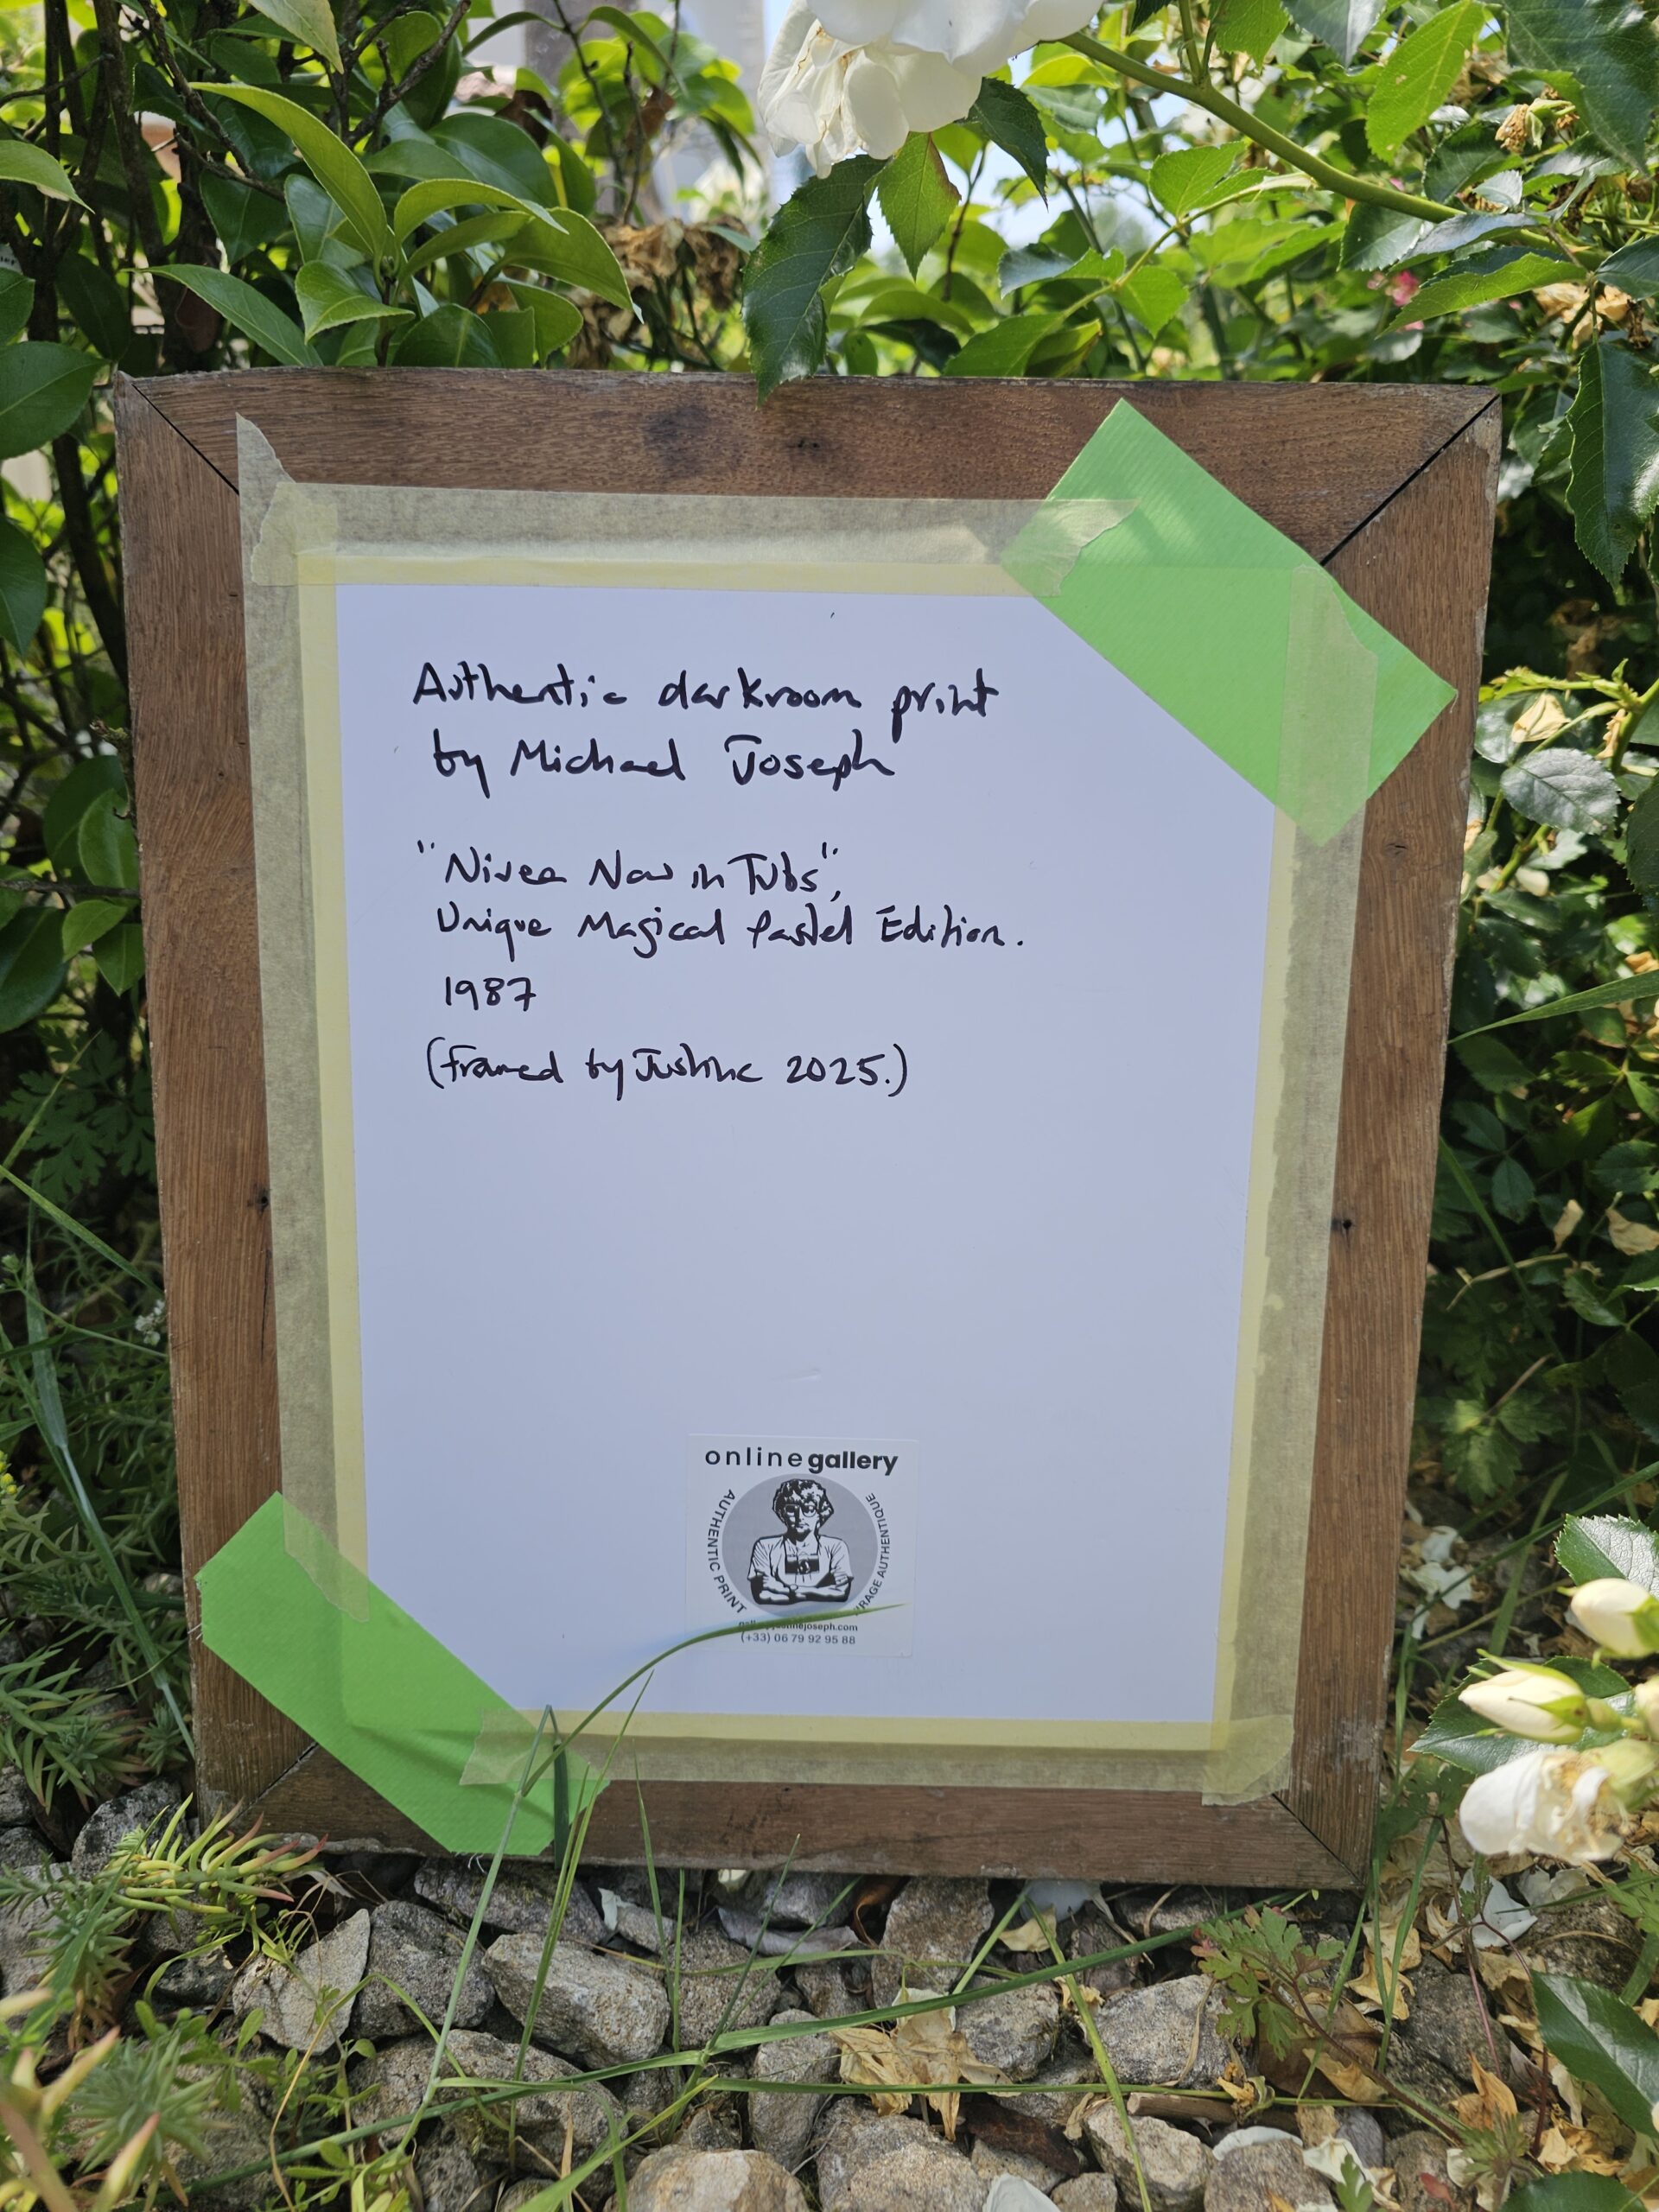 Authentic darkroom print
by Michael Joseph
"Nivea Now in Tubs",
Unique Magical Pastel Edition.
1987
(framed by Justine 2025.)
onlinegallery
AUTHENTIC PRINT
AUTHENTIQUE
(+33) 06 79 92 95 88